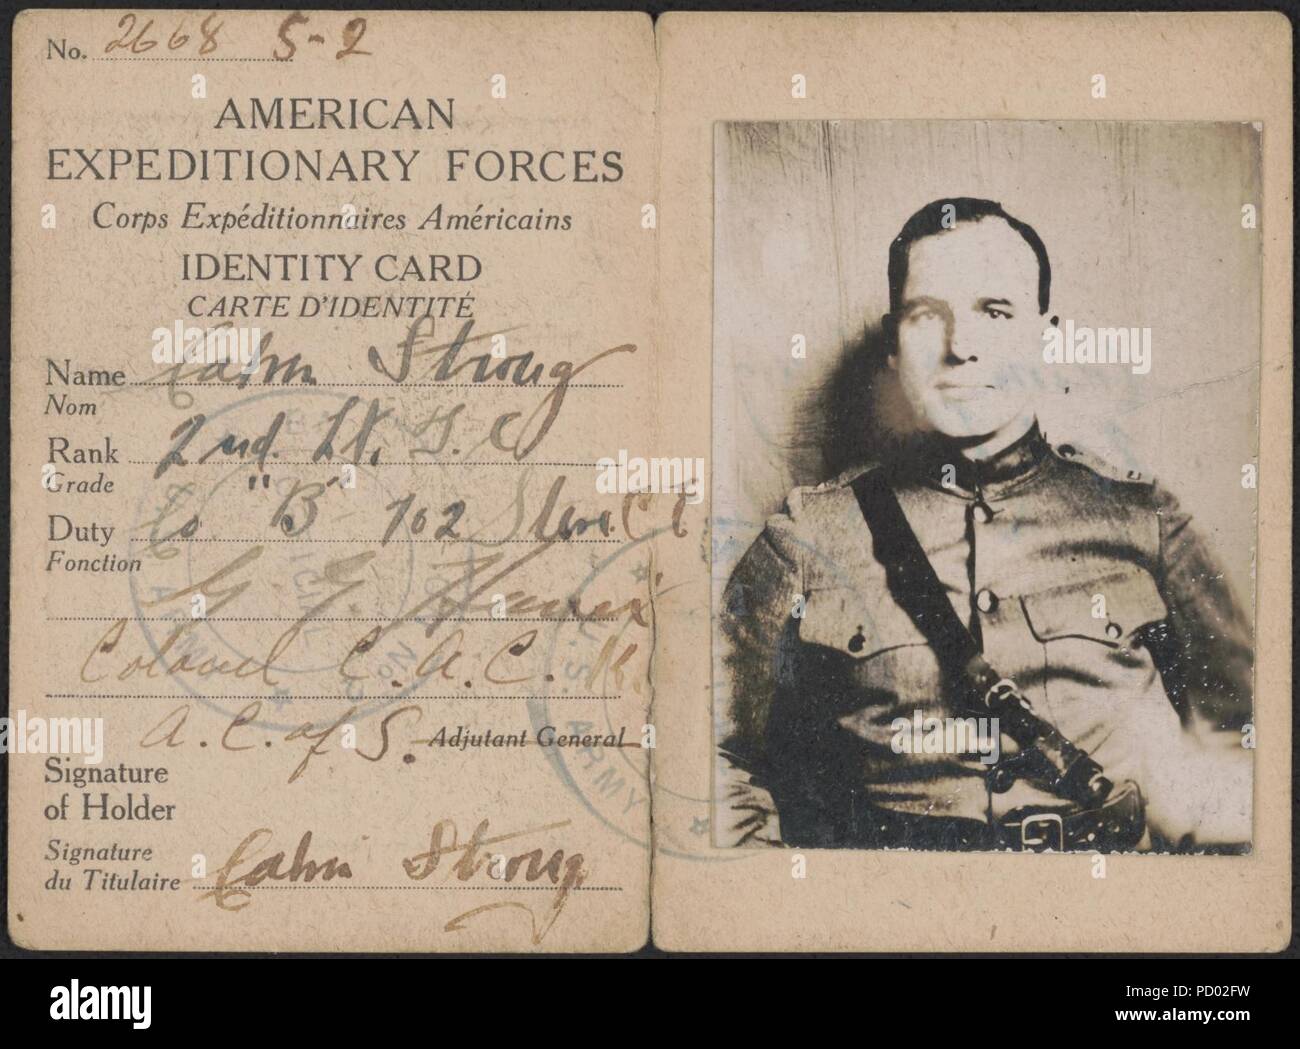 No. 2668 5-2
AMERICAN
EXPEDITIONARY FORCES
Corps Expéditionnaires Américains
IDENTITY CARD
CARTE D'IDENTITÉ
Name Calvin Strong
Nom
Rank 2nd. Lt.
Grade
Duty Co "B" 102
Fonction
Colonel C. A. C.
A. C. of S. Adjutant General
Signature
of Holder
Signature
du Titulaire Calvin Strong
U.S. ARMY
alamy
Image ID: PD02FW
www.alamy.com